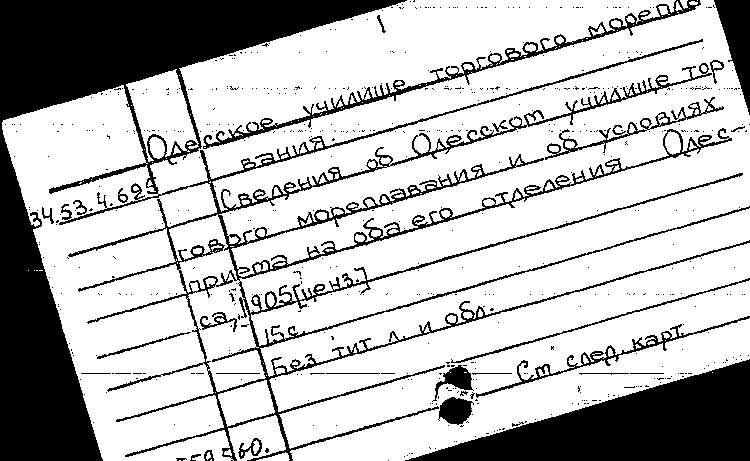 1
Одесское училище торгового морепла
вания.
34.53.4.695
Сведения об Одесском училище тор
гового мореплавания и об условиях
приема на оба его отделения. Одес-
са, 1905 [ценз.]
15с.
Без тит л. и обл.
См след. карт
59560.